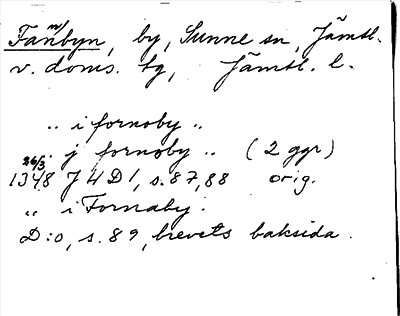 Fanbyn, m/ by, Sunne sn, Jämtl.
v. doms. tg, Jämtl. l.
.. i fornøby ..
.. j fornøby .. (2 ggr)
26/3 1348 J H D 1, s. 87, 88 orig.
.. i Fornaby.
D:o, s. 89, brevets baksida.